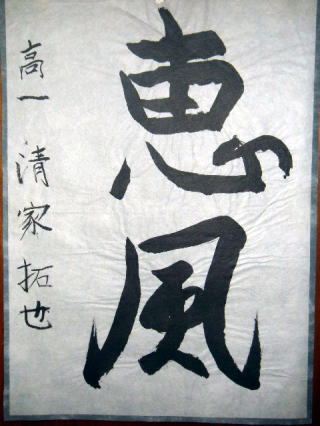 恵風
高一 清家拓也